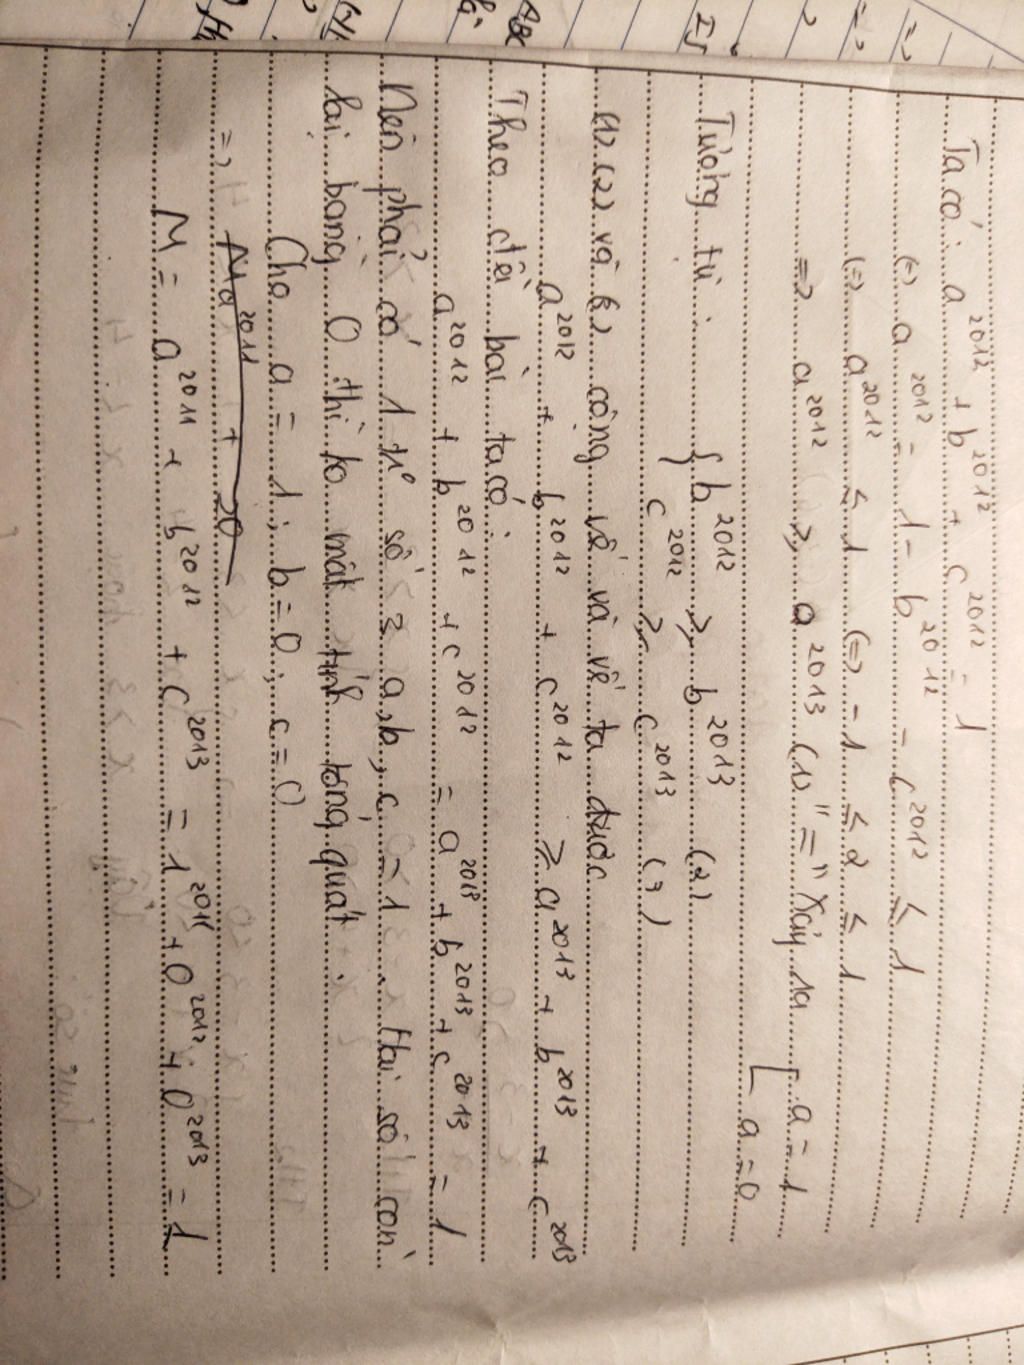 Ta có : a²⁰¹² + b²⁰¹² + c²⁰¹² = 1
(=) a²⁰¹² = 1 - b²⁰¹² - c²⁰¹² ≤ 1
(=> a²⁰¹² ≤ 1 (=> -1 ≤ a ≤ 1
=> a²⁰¹² ≥ a²⁰¹³ (1) "=" Xảy ra [ a = 1
a = 0
Tương tự : { b²⁰¹² ≥ b²⁰¹³ (2)
c²⁰¹² ≥ c²⁰¹³ (3)
(1) (2) và (3) cộng vế và vế ta được
a²⁰¹² + b²⁰¹² + c²⁰¹² ≥ a²⁰¹³ + b²⁰¹³ + c²⁰¹³
Theo đề bài ta có :
a²⁰¹² + b²⁰¹² + c²⁰¹² = a²⁰¹³ + b²⁰¹³ + c²⁰¹³ = 1
Nên phải có 1 số a, b, c = 1 . Hai số còn
lại bằng 0 thì ko mất tính tổng quát .
Cho a = 1 ; b = 0 ; c = 0
=> Ma²⁰¹¹ + 20
M = a²⁰¹¹ + b²⁰¹² + c²⁰¹³ = 1²⁰¹¹ + 0²⁰¹² + 0²⁰¹³ = 1